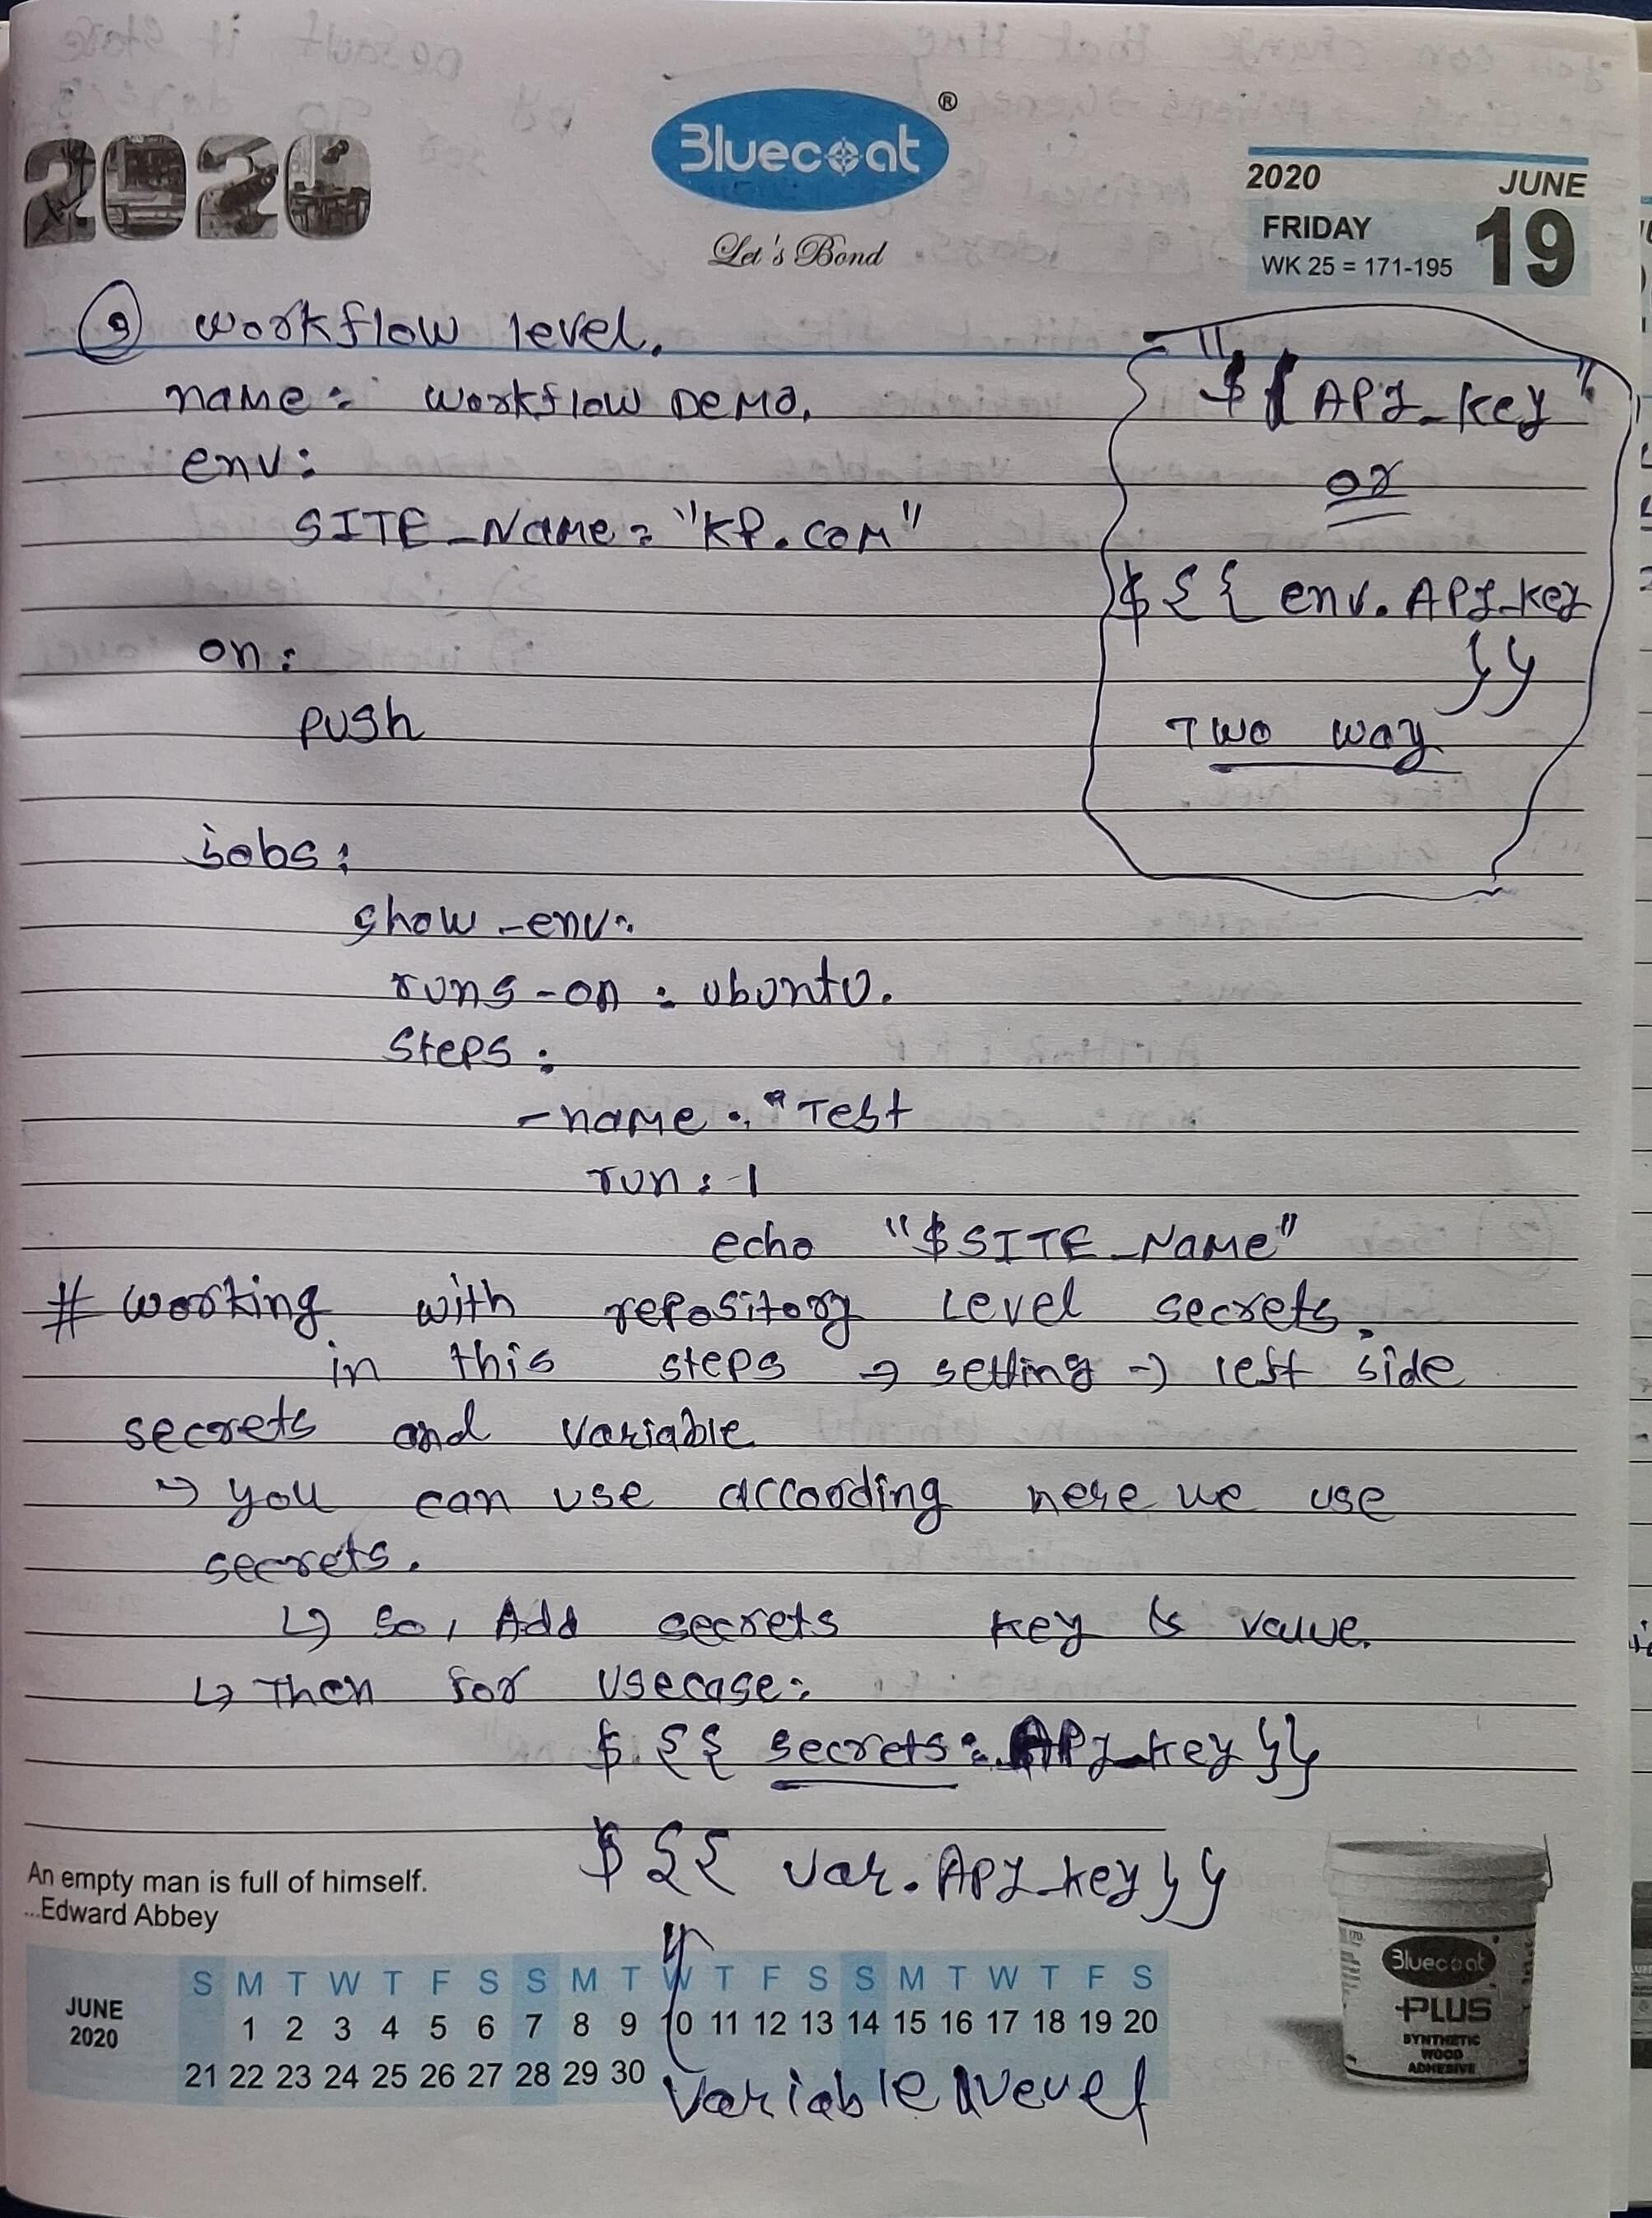 2020
Bluecoat ®
Let's Bond
2020 JUNE
FRIDAY 19
WK 25 = 171-195
③ workflow level.
name: workflow DEMO.
env:
SITE_Name: "KP.com"
on:
push
jobs:
show-env:
runs-on: ubuntu.
Steps:
-name: "Test
run: |
echo "$SITE_Name"
"${API_key"
or
${{ env.API_key
}}
Two way
# working with repository Level secrets.
in this steps → setting → left side
secrets and variable
→ you can use according here we use
secrets.
↳ So, Add secrets key & value.
↳ Then for usecase:
${{ secrets.API_key}}
${{ var.API_key}}
Variable level
An empty man is full of himself.
...Edward Abbey
JUNE 2020
S M T W T F S S M T W T F S S M T W T F S
1 2 3 4 5 6 7 8 9 10 11 12 13 14 15 16 17 18 19 20
21 22 23 24 25 26 27 28 29 30
Bluecoat
PLUS
SYNTHETIC
WOOD
ADHESIVE